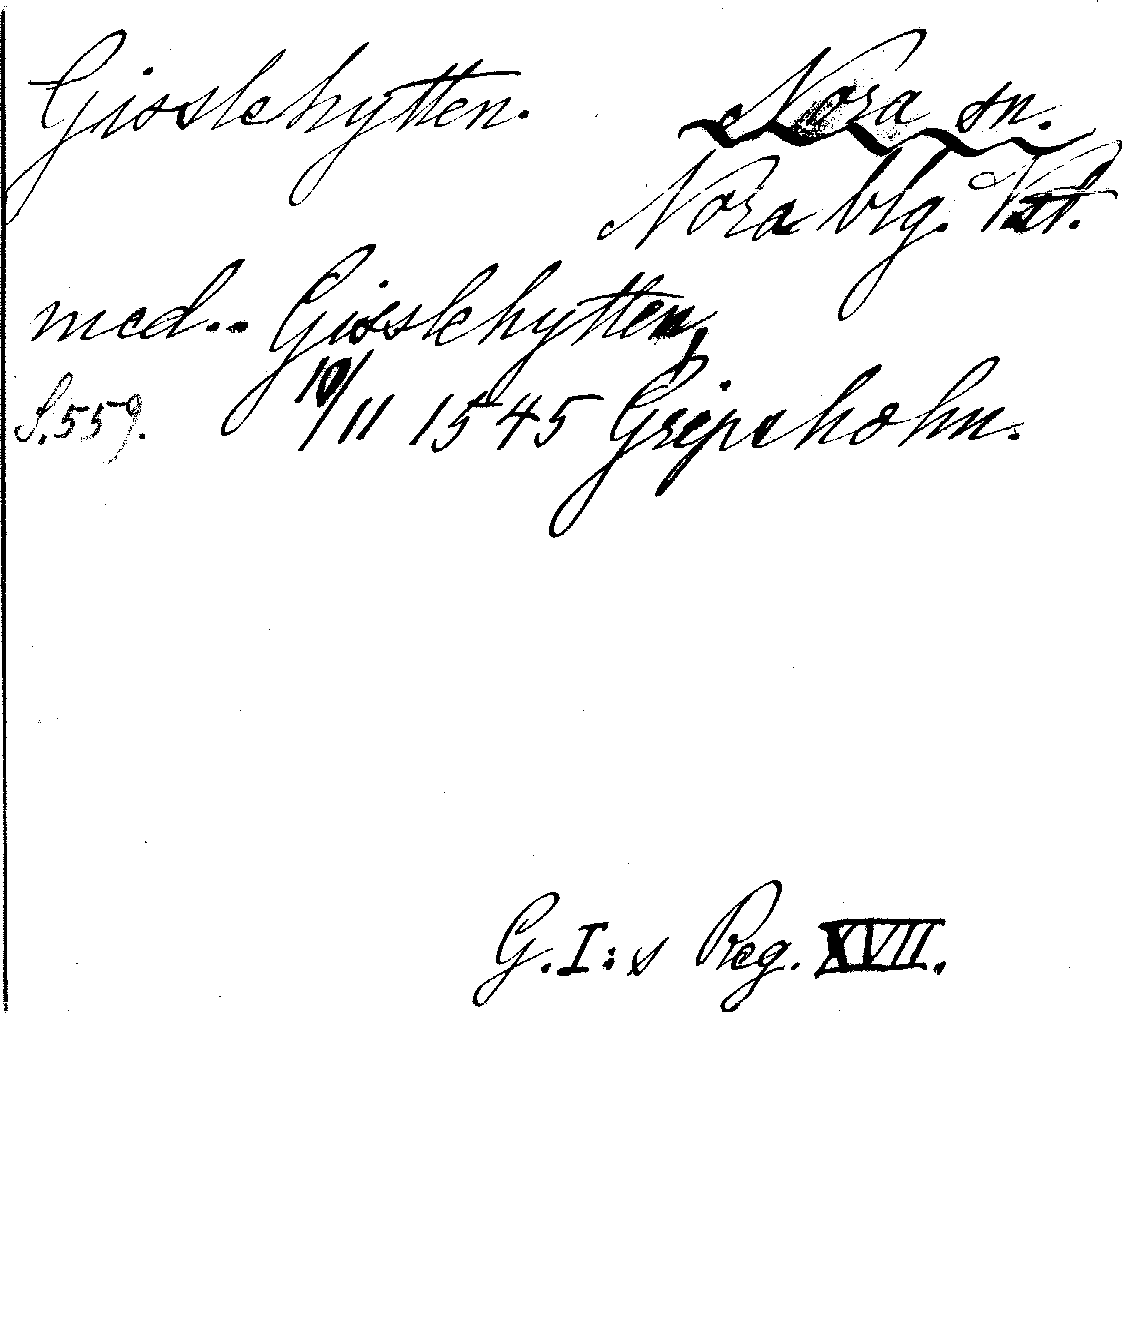 Gisslehytten. Nora sn.
Nora blg. Vst.
med.. Gisslehytten,
S. 559. 10/11 1545 Gripsholm.
G.I:s Reg. XVII.